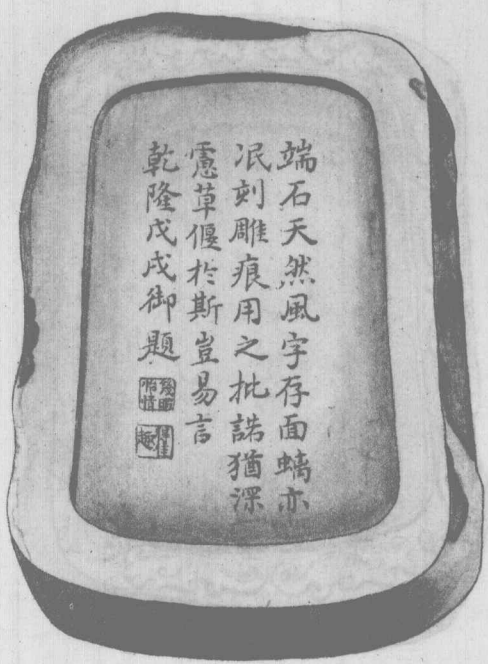 端石天然風字存面螭亦
泯刻雕痕用之批諾猶深
慮草偃於斯豈易言
乾隆戊戌御題
幾暇怡情
得佳趣